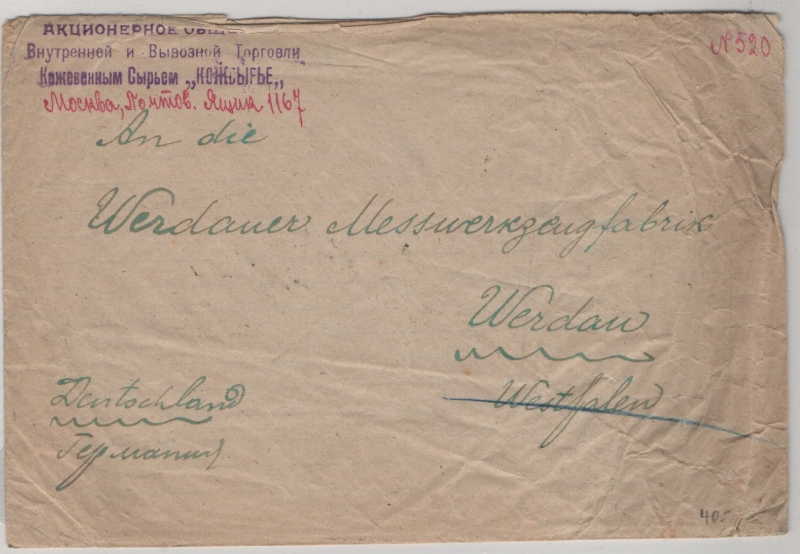 АКЦИОНЕРНОЕ ОБЩЕ
Внутренней и Вывозной Торговли
Кожевенным Сырьем „КОЖСЫРЬЕ„
Москва, Почтов. Ящик 1167
№ 520
An die
Werdauer Messwerkzeugfabrik
Werdau
Westfalen
Deutschland
Германия
40.-